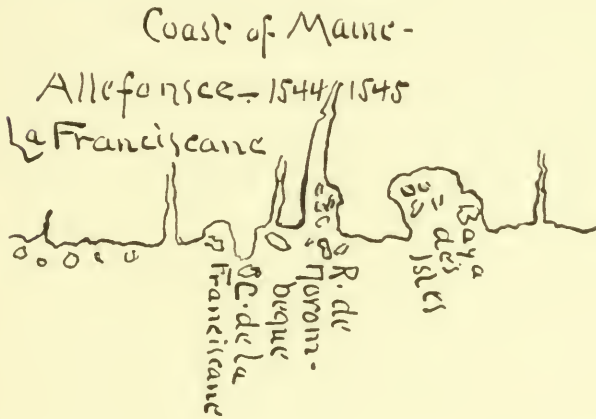 Coast of Maine-
Allefonsce - 1544/1545
La Franciscane
C. de la
Franciscane
R. de
Noram-
beque
Baya
des
Isles